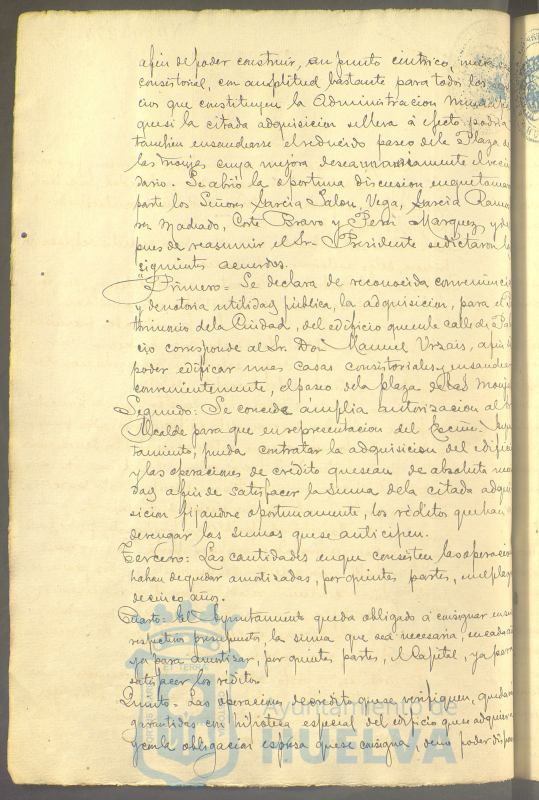 afin de poder construir, en punto céntrico, nueva
consistorial, con amplitud bastante para todos los
cios que constituyen la Administracion Muni
que si la citada adquisicion se lleva á efecto podria
tambien ensancharse el reducido paseo de la Plaza de
las Monjas cuya mejora desea el vecin
dario. Se abrió la oportuna discusion en que tomaron
parte los Señores Garcia Jalon, Vega, Garcia Ramos
Machado, Corte Bravo y Perez Marquez, y des
pues de reasumir el Sr. Presidente se dictaron los
siguientes acuerdos.
"Primero= Se declara de reconocida conveniencia
y de notoria utilidad pública, la adquisicion, para el Pa
trimonio de la Ciudad, del edificio que en la calle de Pala
cio corresponde al Sr. Don Manuel Vrzaiz, afin de
poder edificar unas casas consistoriales y ensanchar
convenientemente, el paseo de la plaza de las Monjas
Segundo: Se concede ámplia autorizacion al Sr.
Alcalde para que en representacion del Excmo. Ayun
tamiento, pueda contratar la adquisicion del edificio
y las operaciones de crédito que sean de absoluta nece
dad afin de satisfacer la suma de la citada adqui
sicion fijandose oportunamente, los réditos que han
devengar las sumas que se anticipen.
Tercero: Las cantidades en que consisten las operacion
habran de quedar amortizadas, por quintas partes, en el plazo
de cinco años.
Cuarto= El Ayuntamiento queda obligado á consignar en sus
respectivos presupuestos la suma que sea necesaria, en cada año
ya para amortizar, por quintas partes, el Capital, ya para
satisfacer los réditos.
Quinto- Las operaciones de crédito que se verifiquen, quedan
garantidas con hipoteca especial del edificio que se adquiere
y con la obligacion espresa que se consigna, de no poder dispo
Ayuntamiento de
HUELVA